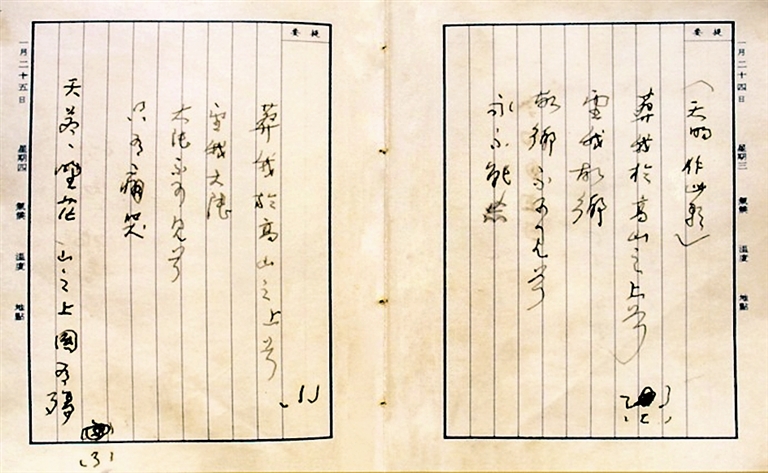 一月二十四日 星期三 氣候 溫度 地點
提要
（天明作此歌）
葬我於高山之上兮
望我故鄉
故鄉不可見兮
永不能忘
(2)
提要
葬我於高山之上兮
(1)
望我大陸
大陸不可見兮
只有痛哭
天蒼〻野茫〻山之上國有殤
(3)
一月二十五日 星期四 氣候 溫度 地點